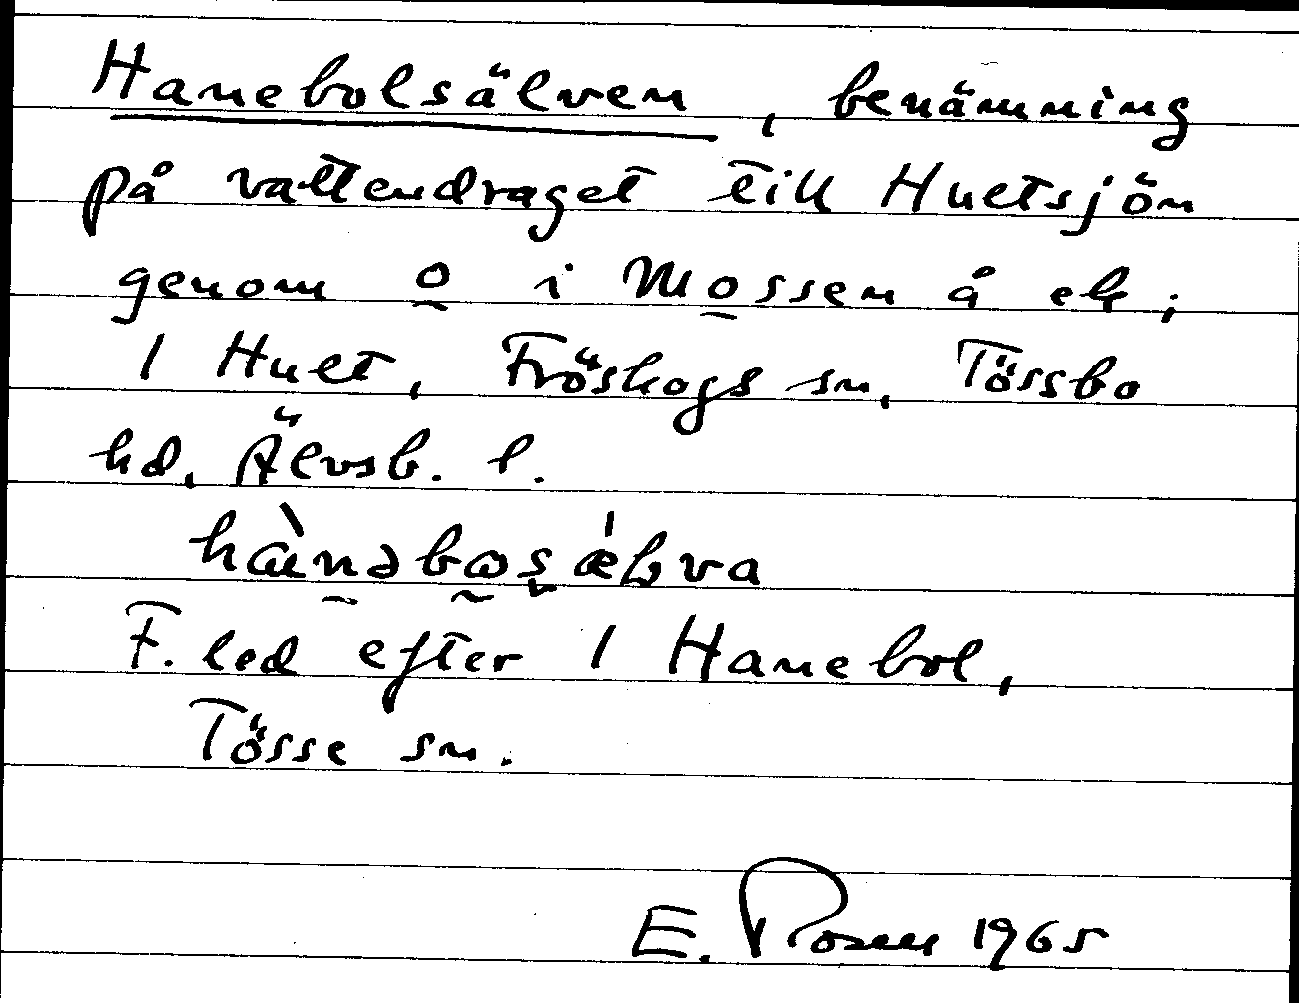 Hanebolsälven, benämning
på vattendraget till Huetsjön
genom o i Mossen å ek;
1 Huet, Fröskogs sn, Tössbo
hd. Älvsb. l.
F. led efter 1 Hanebol,
Tösse sn.
E. Rosell 1965